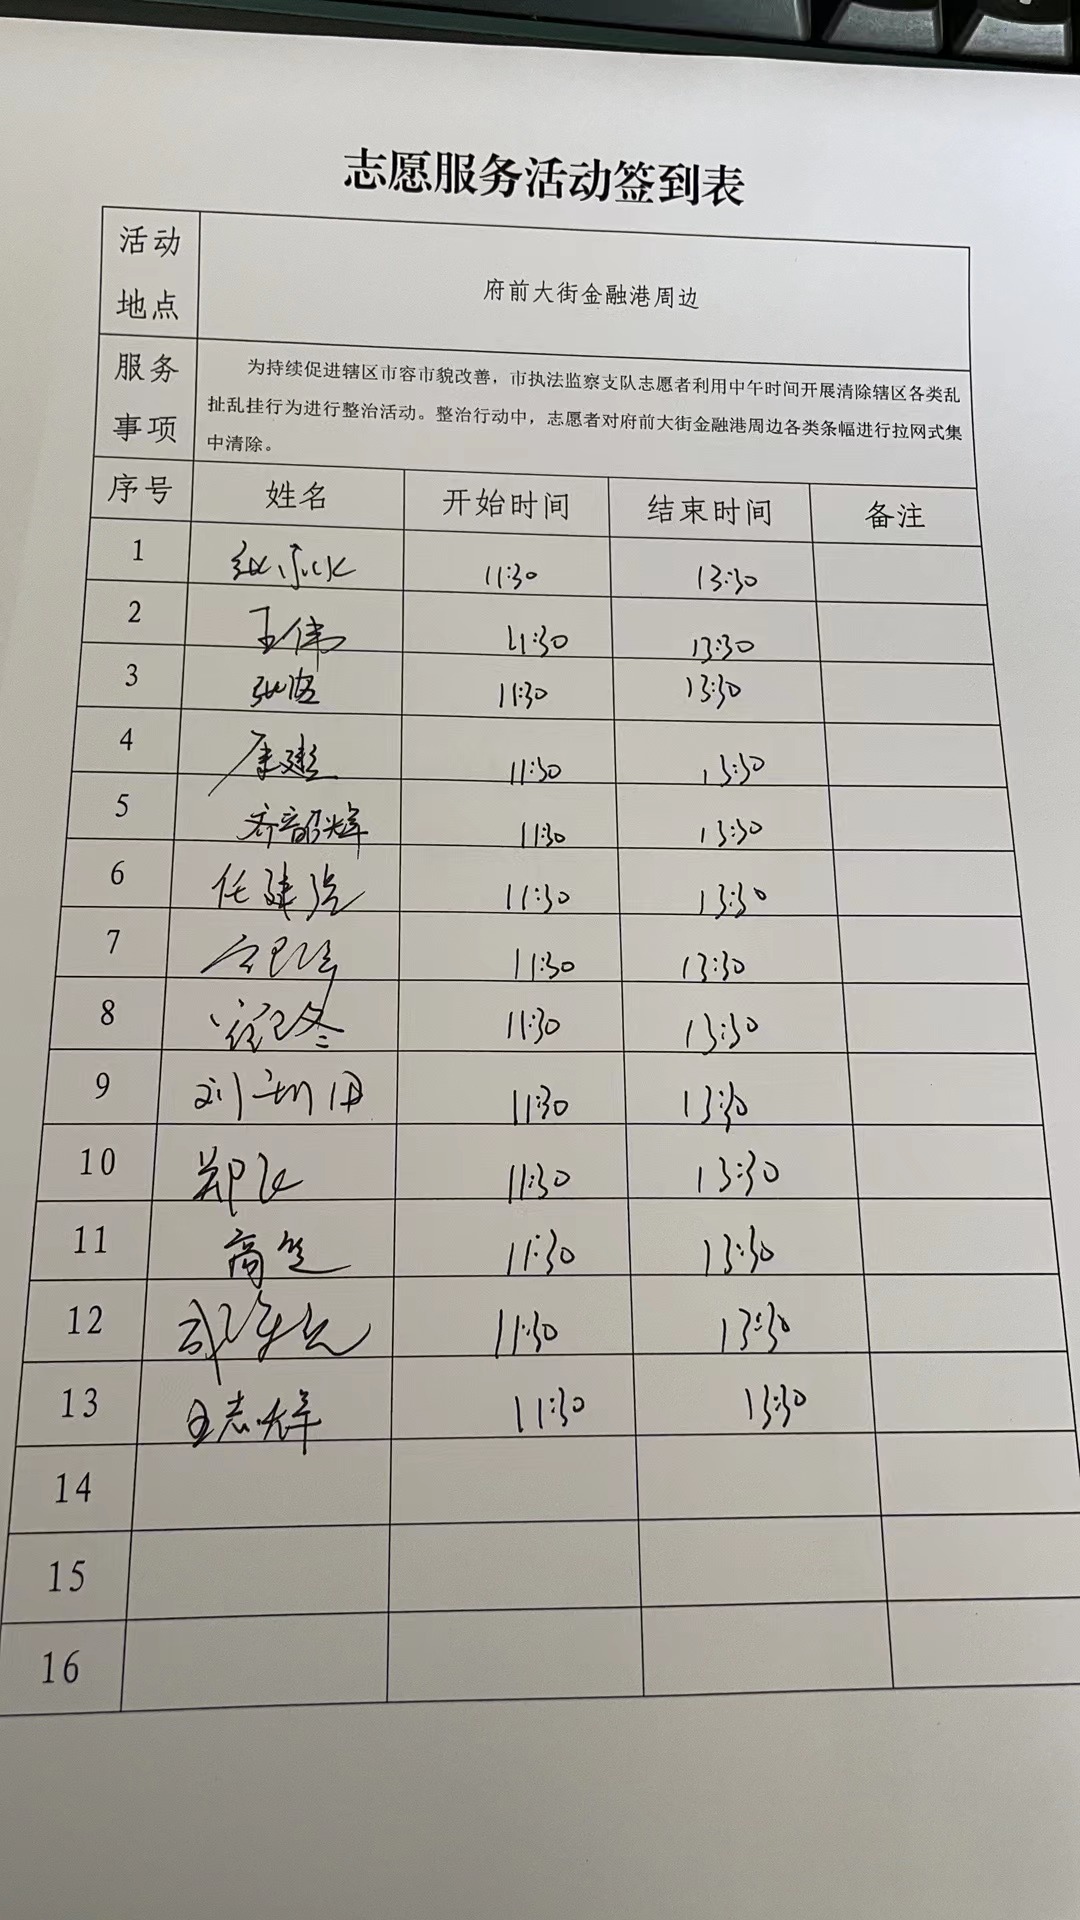 志愿服务活动签到表
活动地点 府前大街金融港周边
服务事项 为持续促进辖区市容市貌改善，市执法监察支队志愿者利用中午时间开展清除辖区各类乱
扯乱挂行为进行整治活动。整治行动中，志愿者对府前大街金融港周边各类条幅进行拉网式集
中清除。
序号 姓名 开始时间 结束时间 备注
1 11:30 13:30
2 王伟 11:30 13:30
3 11:30 13:30
4 康建 11:30 13:30
5 齐韶辉 11:30 13:30
6 任建强 11:30 13:30
7 11:30 13:30
8 11:30 13:30
9 刘 11:30 13:30
10 郑飞 11:30 13:30
11 高 11:30 13:30
12 11:30 13:30
13 王志辉 11:30 13:30
14
15
16